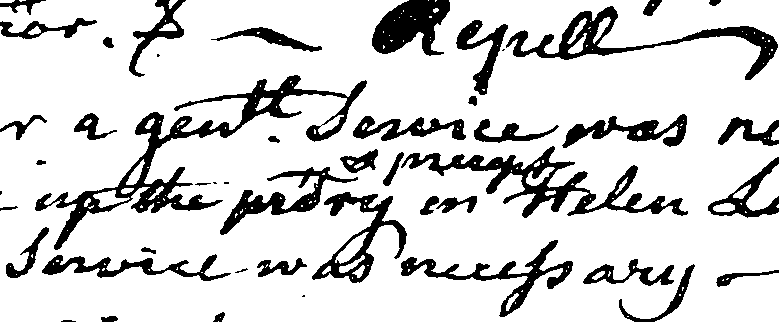 ior. Repell
r a genll. Service was ne
& precept
up the prōry in Helen
Service was necessary